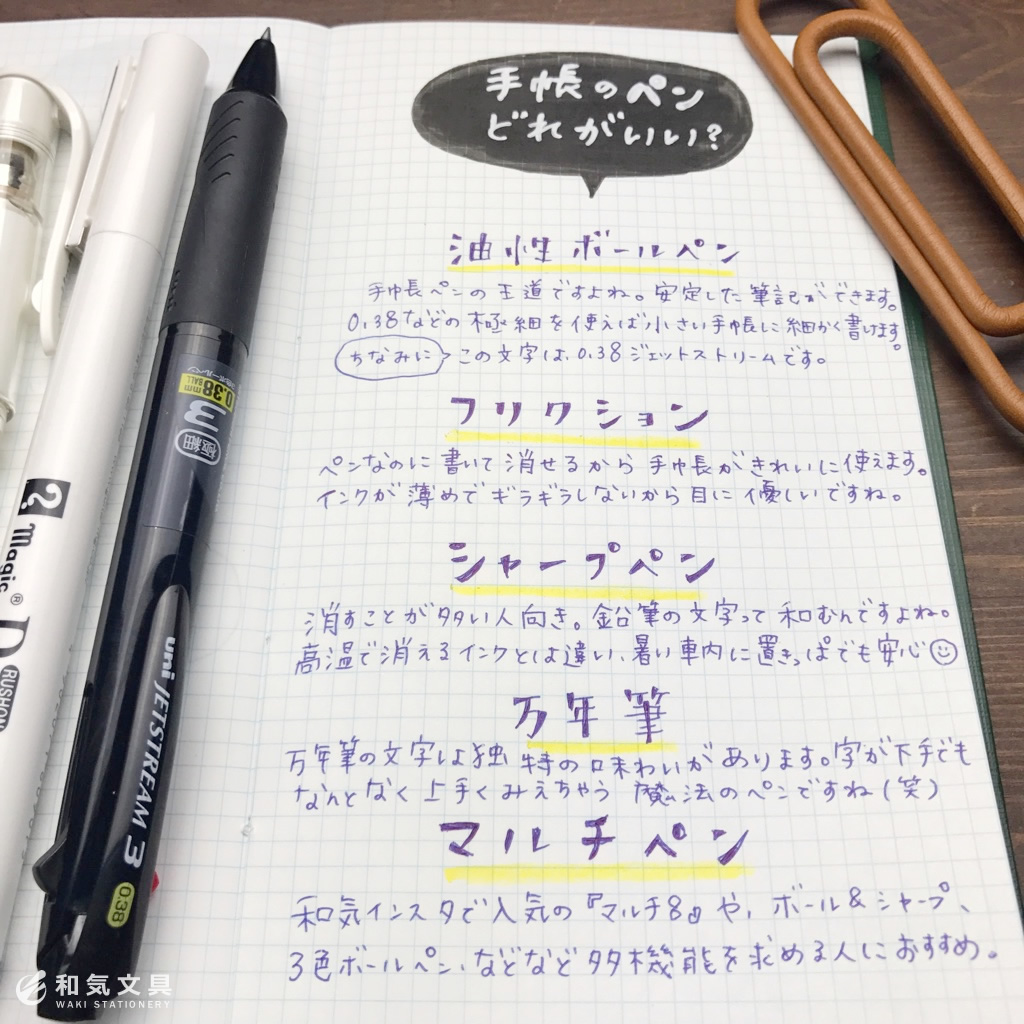 手帳のペン
どれがいい?
油性ボールペン
手帳ペンの王道ですよね。安定した筆記ができます。
0.38などの極細を使えば小さい手帳に細かく書けます。
ちなみに この文字は、0.38ジェットストリームです。
フリクション
ペンなのに書いて消せるから手帳がきれいに使えます。
インクが薄めでギラギラしないから目に優しいですね。
シャープペン
消すことが多い人向き。鉛筆の文字って和むんですよね。
高温で消えるインクとは違い、暑い車内に置きっぱでも安心
万年筆
万年筆の文字は独特の味わいがあります。字が下手でも
なんとなく上手くみえちゃう魔法のペンですね(笑)
マルチペン
和気インスタで人気の『マルチ8』や、ボール&シャープ、
3色ボールペン、などなど多機能を求める人におすすめ。
0.38mm
BALL
3
極細
uni JETSTREAM 3
0.38
?
Magic®
RUSHON
和気文具
WAKI STATIONERY